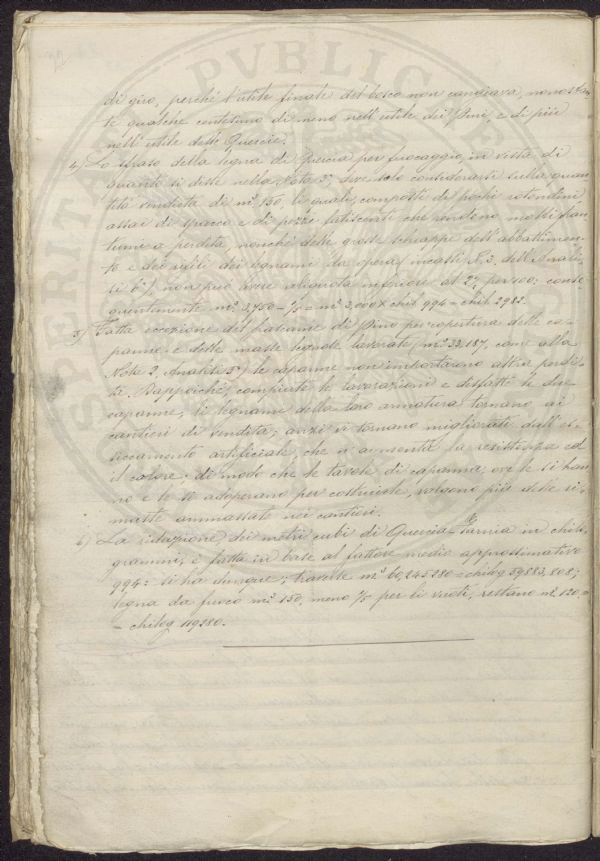 di giro, perchè l'utile finale del bosco non cangiava, nonostan
te qualche centesimo di meno nell'utile dei Pini e di più
nell'utile delle Quercie.
4) Lo sfraso della legna di Quercia per fuocaggio, in vista di
quanto si disse nella Nota 3ª, deve solo considerarsi sulla quan
tità venduta di mc. 150, li quali, composti di pochi rotondini,
assai di spacco e di pezzi fatiscenti che rendono molti fran
tumi a perdita, nonchè delle grosse schiappe dell'abbattimen
to e dei rifili dei legnami da opera,
non può avere aliquota inferiore al 2½ per 100: conse
guentemente mc. 3,750 - ⅕ = mc. 3,000 X chil. 994 = chil. 2982.
5) Fatta eccezione del balcame di Pino per copertura delle ca
panne e delle masse legnose lavorate, mc. 33,187, come alla
Nota 2, Analitica 5ª, le capanne non importarono altra perdi
ta. Dappoichè, compiute le lavorazioni e disfatte le due
capanne, li legnami della loro armatura tornano ai
cantieri di vendita; anzi vi tornano migliorati dall'es
siccamento artificiale, che n'aumenta la resistenza ed
il calore: di modo che le tavole di capanna, ove le si han
no e le si adoperano per costruirle, valgono più delle ri
maste ammassate nei cantieri.
6) La riduzione dei metri cubi di Quercia Farnia in chilo
grammi, è fatta in base al fattore medio approssimativo
994: si ha dunque; traverse mc. 60,245.280 = chilog. 59883,808;
legna da fuoco mc. 150, meno ⅕ per li vuoti, restano mc. 120,=
= chilog. 119280.
PVBLIC